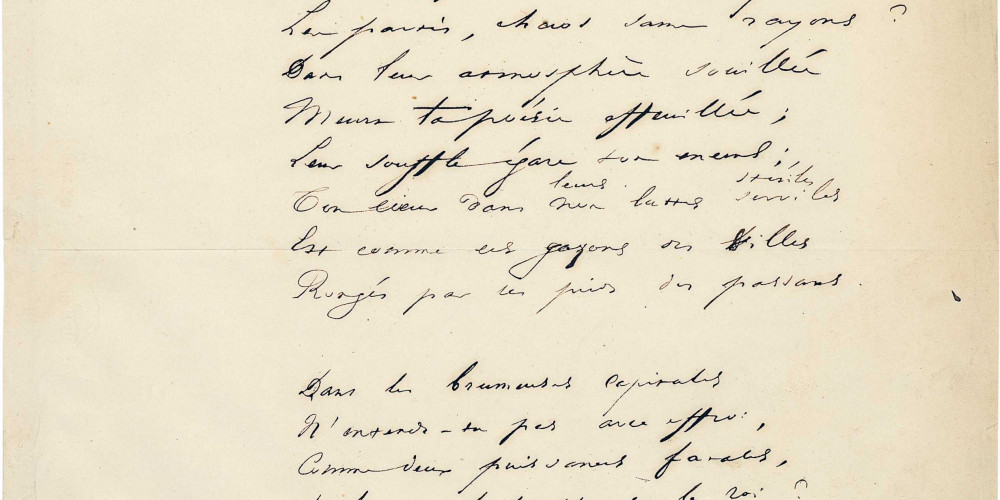 Les partis, chaos sans rayons ?
Dans leur atmosphère souillée
Meurt ta poésie effeuillée ;
Leur souffle égare ton encens ;
leurs stériles
Ton cœur dans nos luttes serviles
Est comme ces gazons des villes
Rongés par les pieds des passans.
Dans les brumeuses capitales
N'entends-tu pas avec effroi,
Comme deux puissances fatales,
le roi ?